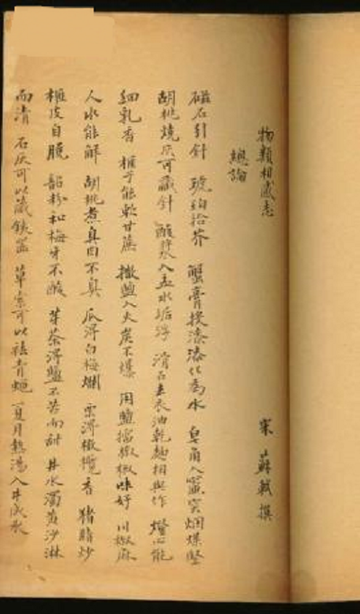 物類相感志 宋 蘇軾撰
總論
磁石引針 琥珀拾芥 蟹膏投漆漆化為水 皂角入竈突烟煤墜
胡桃燒灰可藏針 酸漿入盂水垢浮 滑石去衣油乾麵相與作 燈心能
細乳香 榧子能軟甘蔗 撒鹽入火炭不爆 用鹽擂椒椒味好 川椒麻
人水能解 胡桃煮臭肉不臭 瓜得白梅爛 栗得橄欖香 猪脂炒
榧皮自脫 韶粉和梅牙不酸 芽茶得鹽不苦而甜 井水濁黄沙淋
而清 石灰可以藏鐵器 草索可以祛青蠅 夏月熱湯入井成氷